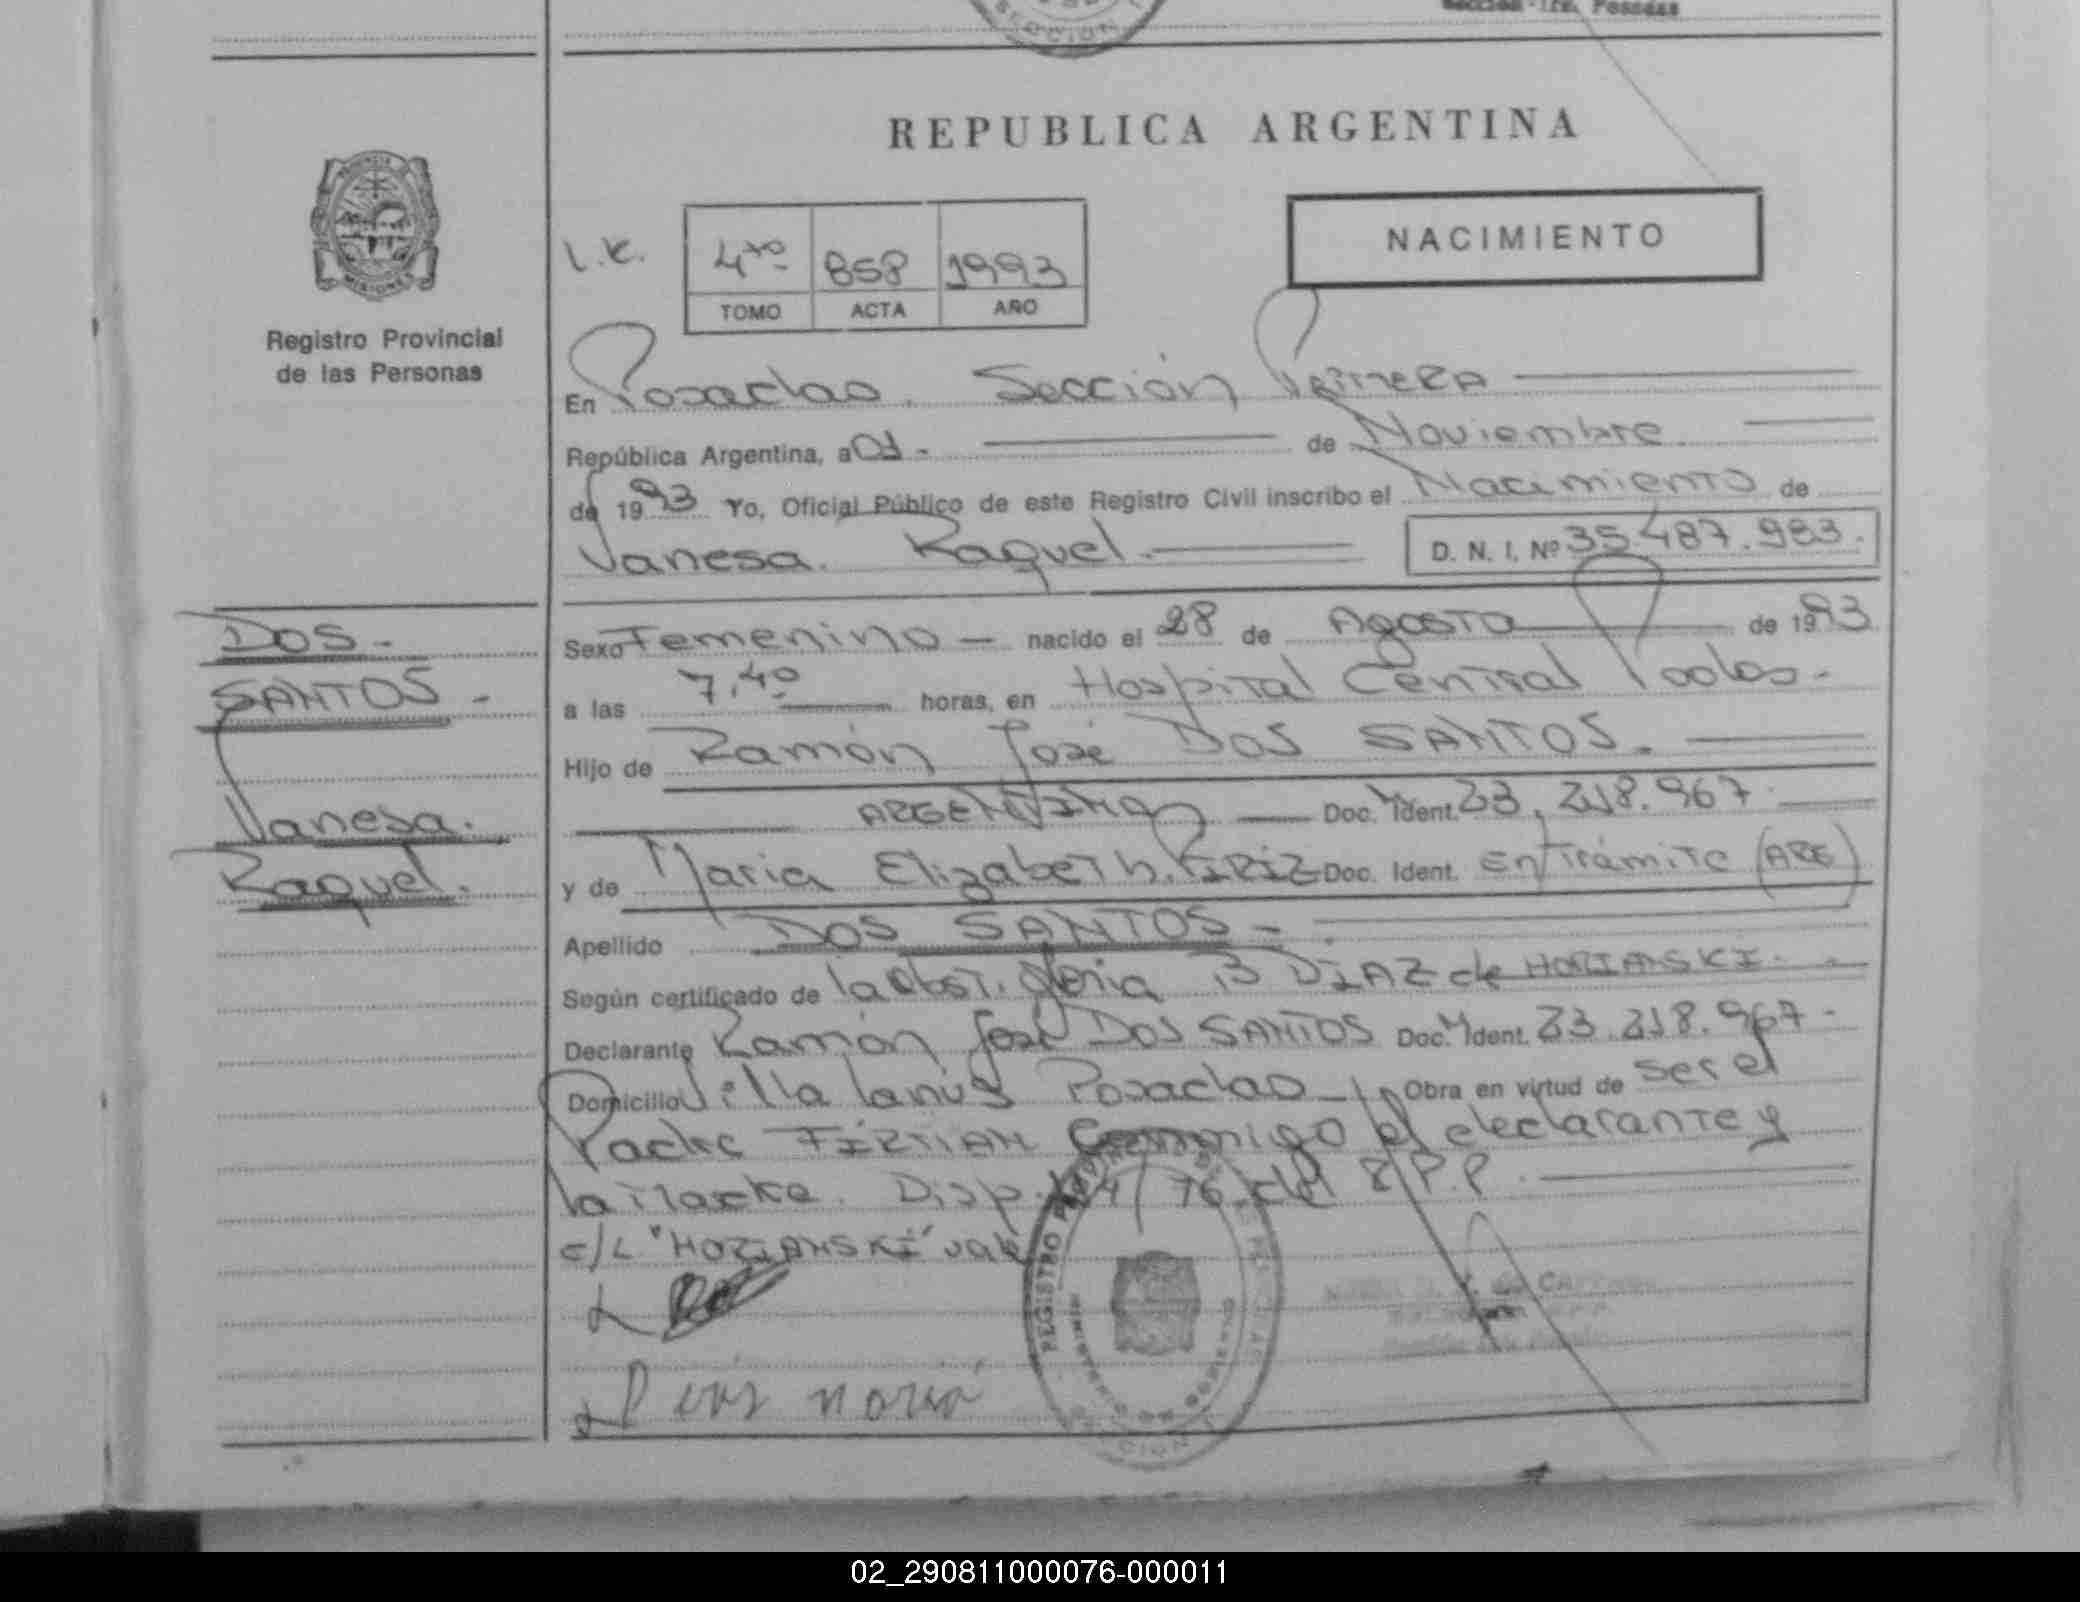 Sección 1ra. Posadas
SECCION
REPUBLICA ARGENTINA
NACIMIENTO
L.E.
4to 858 1993
TOMO ACTA AÑO
MISIONES
Registro Provincial
de las Personas
En Posadas. Sección Primera
República Argentina, a 01.- de Noviembre
de 1993 Yo, Oficial Público de este Registro Civil inscribo el Nacimiento de
Vanesa. Raquel.
D. N. I. Nº 35.487.983.
DOS.-
SANTOS-
Vanesa.
Raquel.
Sexo Femenino — nacido el 28 de Agosto de 1993
a las 7,40 horas, en Hospital Central Pdas.-
Hijo de Ramón José DOS SANTOS.
ARGENTINO Doc. Ident. 23.218.967
y de Maria Elizabeth. PIRIZ Doc. Ident. En Trámite (ARG)
Apellido DOS SANTOS-
Según certificado de la obst. Gloria B DIAZ de HORIANSKI.
Declarante Ramón José DOS SANTOS Doc. Ident. 23.218.967-
Domicilio Villa Lanus Posadas Obra en virtud de ser el
Padre FIRMAN Conmigo el declarante y
la Madre. Disp. 76 del R.P.P.
e/L "HORIANSKI" vale
REGISTRO
MINISTERIO DE GOBIERNO
SECCION
02_290811000076-000011